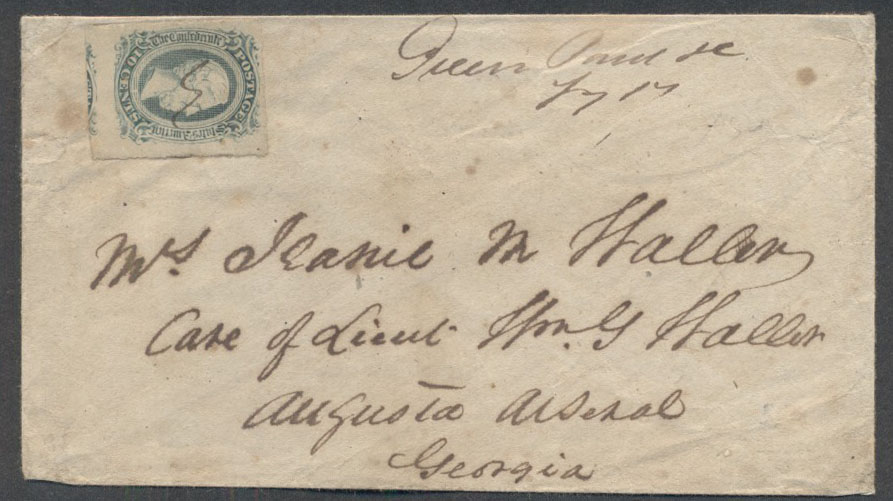 The Confederate
States of America
POSTAGE
TEN CENTS
Green Pond SC
Mrs. Jeanie M Haller
Care of Lieut Wm. G Haller
Augusta Arsenal
Georgia